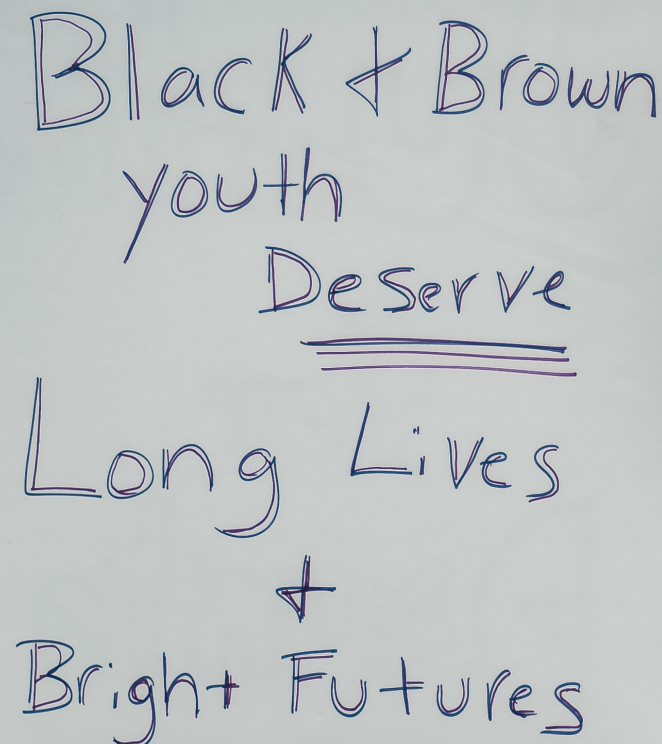 Black + Brown
youth
Deserve
Long Lives
+
Bright Futures